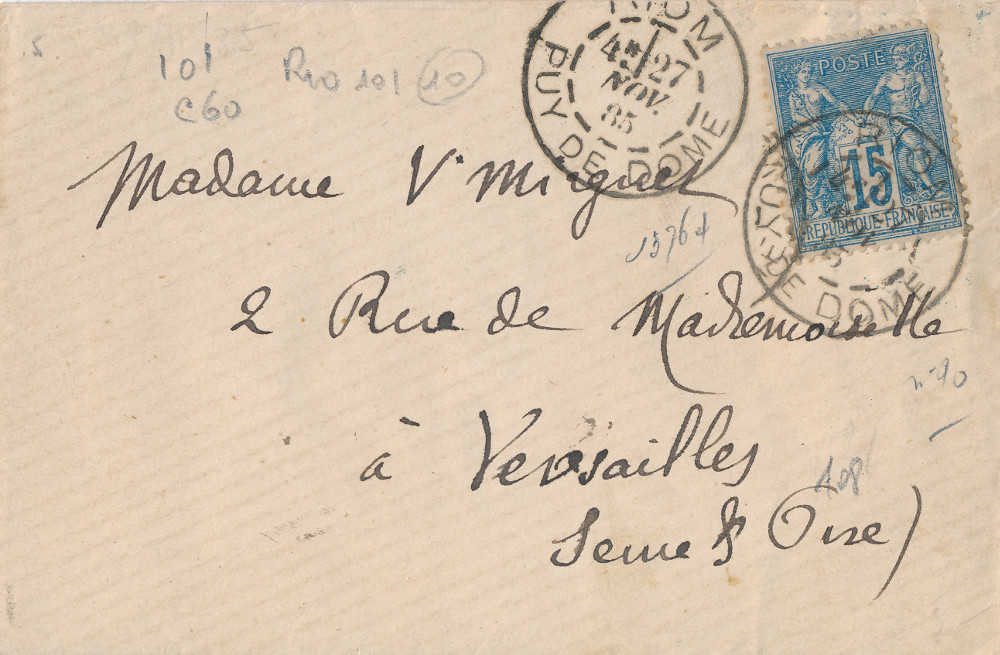 101 Rio 101 10
C60
RIOM
4E 27
NOV.
85
PUY DE DOME
POSTE
15
REPUBLIQUE FRANÇAISE
DOME
Madame Vᵉ Mignet
15764
2 Rue de Mademoiselle
n° 90
à Versailles
108
Seine & Oise)